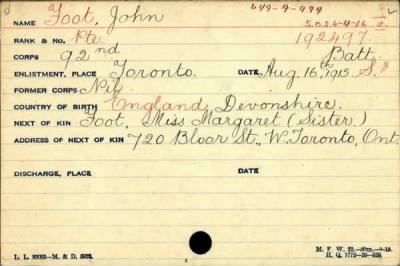 649-9-994
NAME Foot, John S.O.S. 4-4-16
RANK & No. Pte 192497.
CORPS 92nd Batt.
ENLISTMENT, PLACE Toronto. DATE, Aug. 16th, 1915. S.
FORMER CORPS Nil
COUNTRY OF BIRTH England, Devonshire.
NEXT OF KIN Foot, Miss Margaret (Sister)
ADDRESS OF NEXT OF KIN 720 Bloor St., W. Toronto, Ont.
DISCHARGE, PLACE DATE
L. L. M. & D.
M. F. W.
H. Q. 1772-39-839.